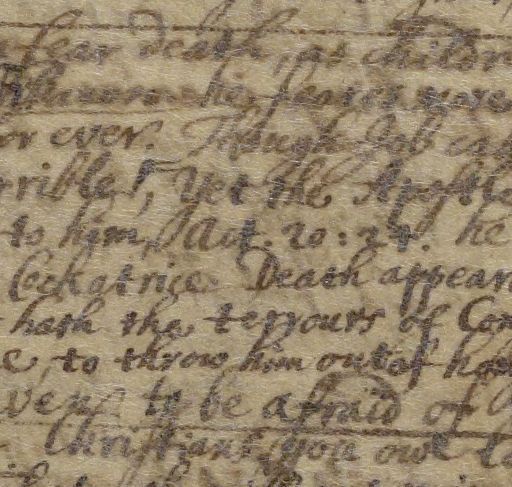 fear death, as childr
his feares were
or ever. Though Job ca
rrible, Yet the Apostle
to him, Act. 20:24. he
Cockatrice. Death appear
hath the terrours of Con
e, to throw him out of ho
to be afraid of
Christians, you owe